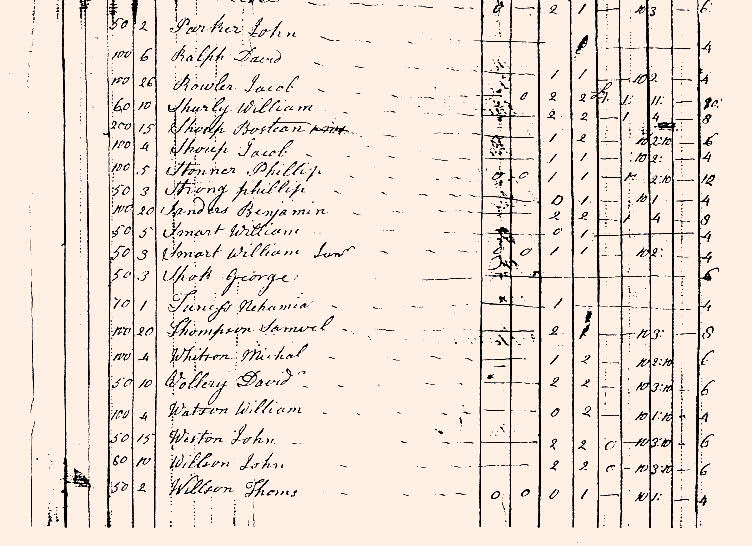 0 2 1 10 3 6
50 2 Parker John 4
100 6 Ralph David 1 1 10 2 4
150 26 Rowler Jacob 0 2 2 1 11
60 10 Shurly William 2 2 1 4 8
200 15 Shoup Bostean 1 2 10 2:10 6
100 4 Shoup Jacob 1 1 10 2: 4
100 5 Stonner Phillip 0 0 1 1 2:10 12
50 3 Strong phillip 0 1 10 1 4
100 20 Sanders Benjamin 2 2 1 4 8
50 5 Smart William 0 1 4
50 3 Smart William Junr 0 1 1 10 2: 4
50 3 Spoh George 6
70 1 Tuness Nehamia 1 4
100 20 Thompson Samuel 2 1 10 3: 8
100 4 Whitson Michal 1 2 10 2:10 6
50 10 Vollery David 2 2 10 3:10 6
100 4 Watson William 0 2 10 1:10 4
50 15 Weston John 2 2 0 10 3:10 6
60 10 Willson John 2 2 0 10 3:10 6
50 2 Willson Thoms 0 0 0 1 10 1: 4